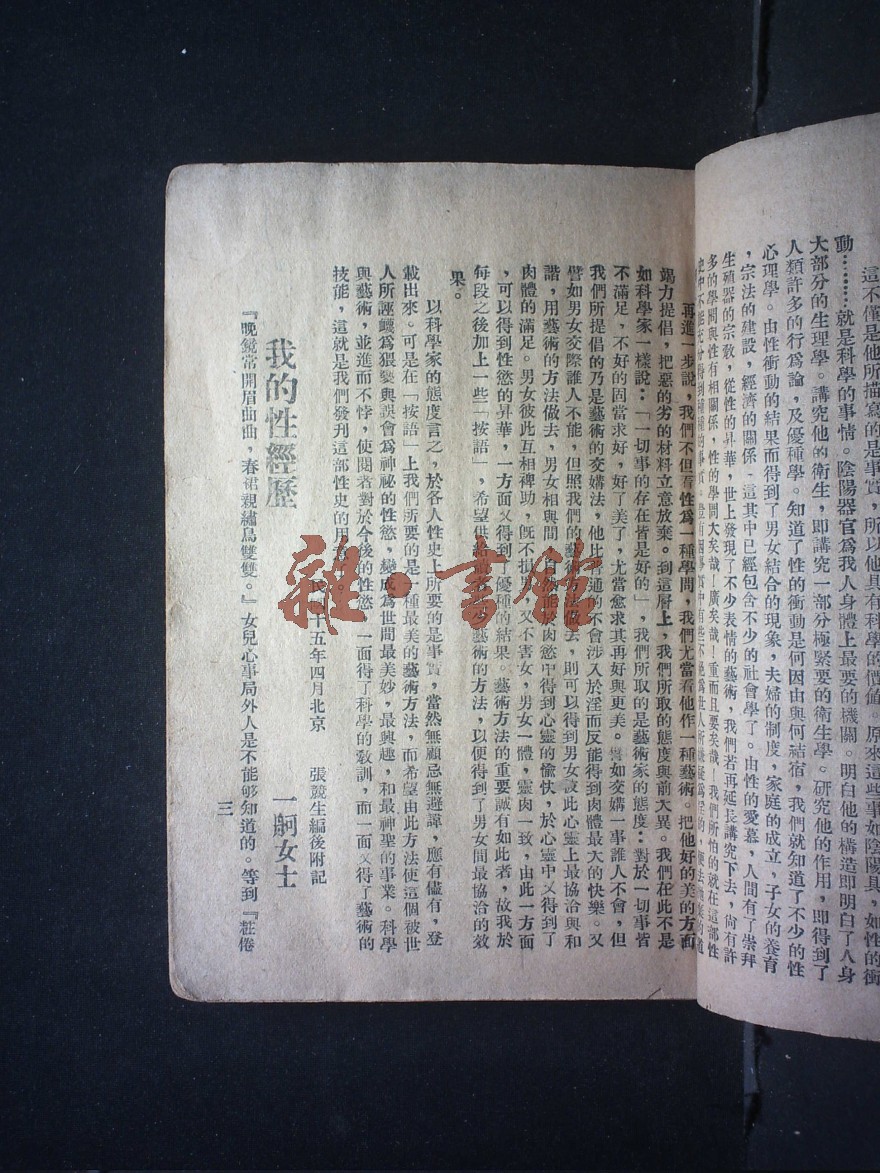 這不僅是他所描寫的是事實，所以他具有科學的價値。原來這些事如陰陽具，如性的衝
動………就是科學的事情。陰陽器官爲我人身體上最要的機關。明白他的構造即明白了人身
大部分的生理學。講究他的衛生，即講究一部分極緊要的衛生學。研究他的作用，即得到了
人類許多的行爲論，及優種學。知道了性的衝動是何因由與何結宿，我們就知道了不少的性
心理學。由性衝動的結果而得到了男女結合的現象，夫婦的制度，家庭的成立，子女的養育
，宗法的建設，經濟的關係，這其中已經包含不少的社會學了。由性的愛慕，人間有了崇拜
生殖器的宗敎，從性的昇華，世上發現了不少表情的藝術，我們若再延長講究下去，尙有許
多的學問與性有相關係，性的學問大矣哉！廣矣哉！重而且要矣哉！我們所怕的就在這部性
史中不能充分得到
再進一步說，我們不但看性爲一種學問，我們尤當看他作一種藝術。把他好的美的方面
竭力提倡，把惡的劣的材料立意放棄。到這層上，我們所取的態度與前大異。我們在此不是
如科學家一樣說：「一切事的存在皆是好的」，我們所取的是藝術家的態度：對於一切事皆
不滿足，不好的固當求好，好了美了，尤當愈求其再好與更美。譬如交媾一事誰人不會，但
我們所提倡的乃是藝術的交媾法，他比普通的不會涉入於淫而反能得到肉體最大的快樂。又
譬如男女交際誰人不能，但照我們的藝術方法做去，則可以得到男女彼此心靈上最協洽與和
諧，用藝術的方法做去，男女相與間，自然能於肉慾中得到心靈的愉快，於心靈中又得到了
肉體的滿足。男女彼此互相裨助，旣不損男，又不害女，男女一體，靈肉一致，由此一方面
，可以得到性慾的昇華，一方面又得到了優種的結果。藝術方法的重要誠有如此者，故我於
每段之後加上一些「按語」，希望供給讀者一些藝術的方法，以便得到了男女間最協洽的效
果。
以科學家的態度言之，於各人性史上所要的是事實，當然無顧忌無避諱，應有儘有，登
載出來。可是在「按語」上我們所要的是一種最美的藝術方法，而希望由此方法使這個被世
人所誣衊爲猥褻與誤會爲神祕的性慾，變成爲世間最美妙，最興趣，和最神聖的事業。科學
與藝術，並進而不悖，使閱者對於今後的性慾，一面得了科學的敎訓，而一面又得了藝術的
技能，這就是我們發刊這部性史的用意。
民國十五年四月北京　張競生編後附記
我的性經歷　一舸女士
『晚鏡常開眉曲曲，春裙親繡鳥雙雙。』女兒心事局外人是不能夠知道的。等到『粧倦
三
雜·書館